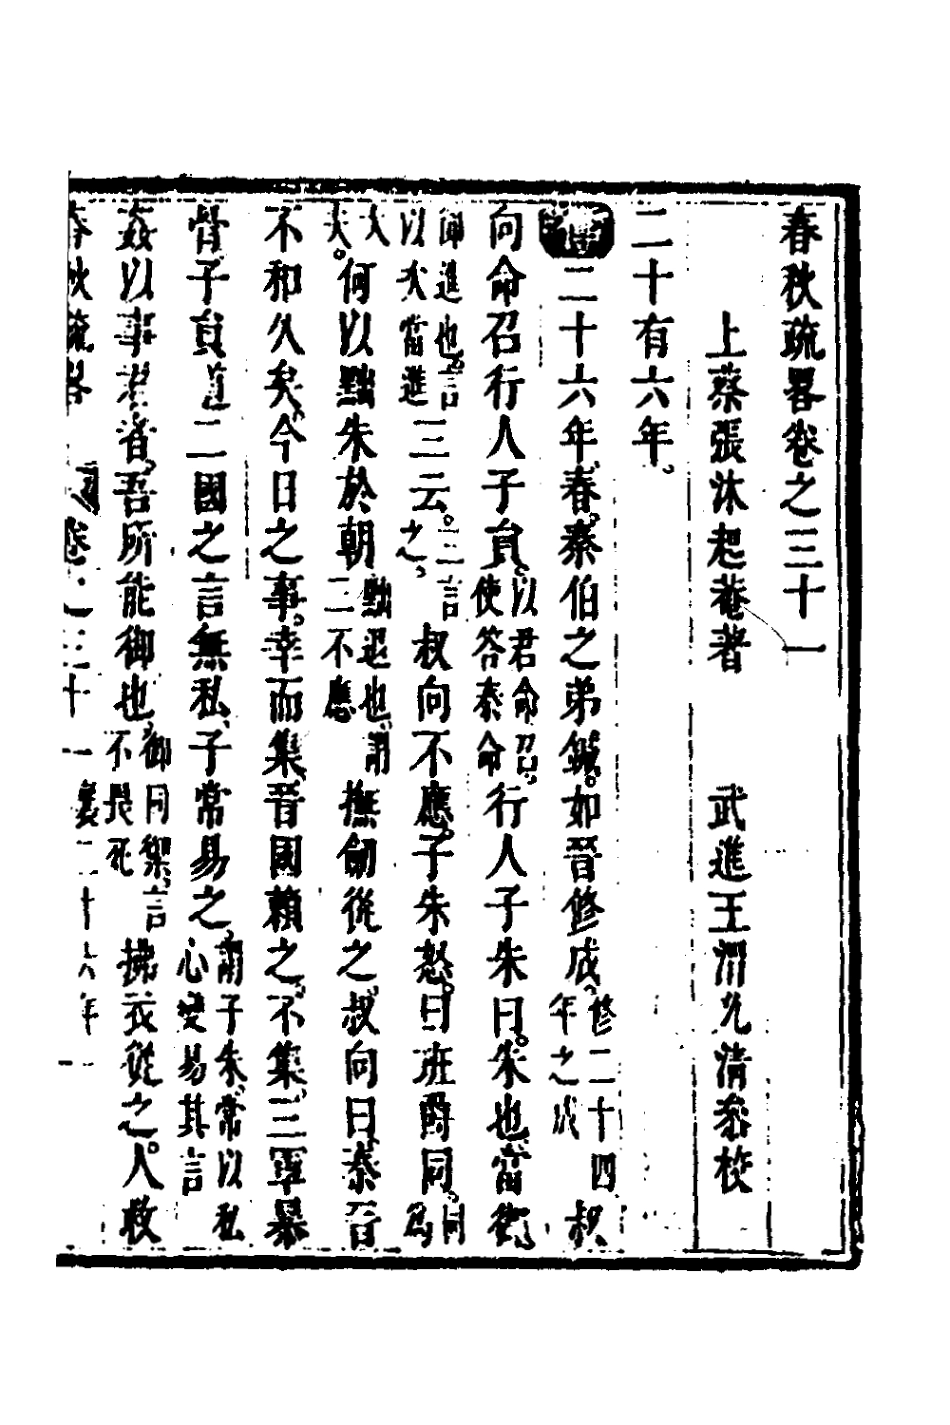 春秋疏畧卷之三十一
上蔡張沐起菴著 武進王渭允清叅校
二十有六年。
二十六年春秦伯之弟鍼。如晉修成。修二十四年之成叔
向命召行人子員。以君命召使答秦命行人子朱曰。朱也當御。
御進也言以次當進三云。三言之。叔向不應。子朱怒。曰班爵同。同爲
大夫。何以黜朱於朝黜退也謂二不應撫劒從之。叔向曰秦晉
不和久矣。今日之事。幸而集。晉國賴之。不集。三軍暴
骨子員道二國之言無私。子常易之。謂子朱常以私心變易其言
姦以事君者。吾所能御也。御同禦言不畏死拂衣從之。人救
春秋疏畧 卷之三十一 襄二十六年 一